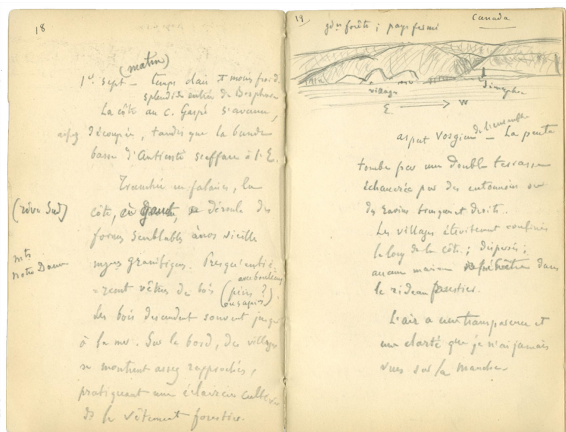 18
(matin)
1er Sept – temps clair & moins froid.
splendide entrée de
La côte au C. Gaspé s'avance,
découpée, tandis que la bande
basse d'Anticosti s'efface à l'E.
Tranchée en falaises, la
(rive Sud)
côte, se déroule des
formes semblables à nos vieilles
mts
Notre Dame
granitiques. Presqu'entiè-
rement vêtus de bois (pins ?)
Les bois descendent souvent jusqu'
à la mer. Sur le bord, des villages
se montrent assez rapprochés,
pratiquant une éclaircie
de le vêtement forestier.
19
Canada
gdes forêts ; pays fermé
village
E. → W
aspect Vosgien de l'ensemble – La pente
tombe par une double terrasse
échancrée par des entonnoirs ou
des ravins
Les villages étroitement confinés
le long de la côte ; dispersés ;
aucune maison dans
le rideau forestier.
L'air a une transparence et
une clarté que je n'ai jamais
vues sur la Manche.